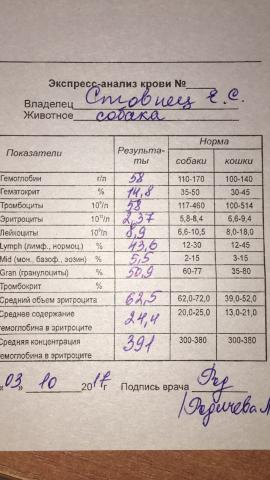 Экспресс-анализ крови №
Владелец Стовпец Е.С.
Животное собака
Показатели Результаты Норма
собаки кошки
Гемоглобин г/л 58 110-170 100-140
Гематокрит % 14,8 35-50 30-45
Тромбоциты 10⁹/л 58 117-460 100-514
Эритроциты 10¹²/л 2,37 5,8-8,4 6,6-9,4
Лейкоциты 10⁹/л 8,9 6,6-10,5 8,0-18,0
Lymph (лимф., нормоц.) % 43,6 12-30 12-45
Mid (мон., базоф., эозин) % 5,5 2-15 3-15
Gran (гранулоциты) % 50,9 60-77 35-80
Тромбокрит %
Средний объем эритроцита 62,5 62,0-72,0 39,0-52,0
Среднее содержание гемоглобина в эритроците 24,4 20,0-25,0 13,0-21,0
Средняя концентрация гемоглобина в эритроците 391 300-380 300-380
«03» 10 2017г Подпись врача